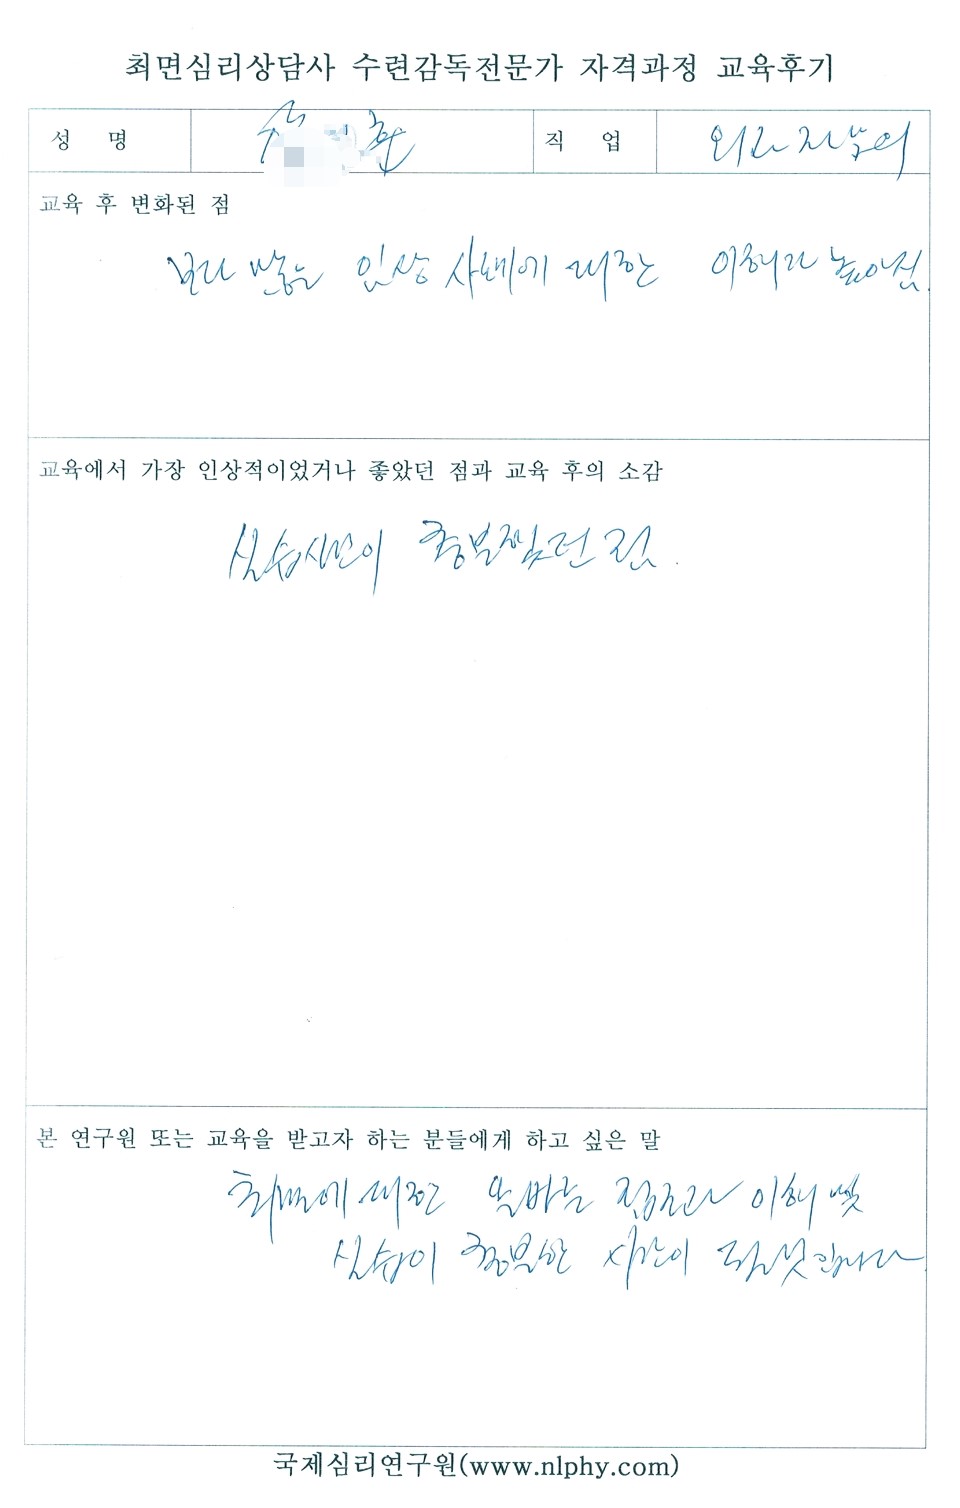 최면심리상담사 수련감독전문가 자격과정 교육후기
성 명
직 업
교육 후 변화된 점
보다 많은 임상 사례에 대한 이해가 높아짐.
교육에서 가장 인상적이었거나 좋았던 점과 교육 후의 소감
실습시간이 충분했던 점.
본 연구원 또는 교육을 받고자 하는 분들에게 하고 싶은 말
최면에 대한 올바른 접근과 이해 및
실습이 충분한 시간이 될것입니다.
국제심리연구원(www.nlphy.com)